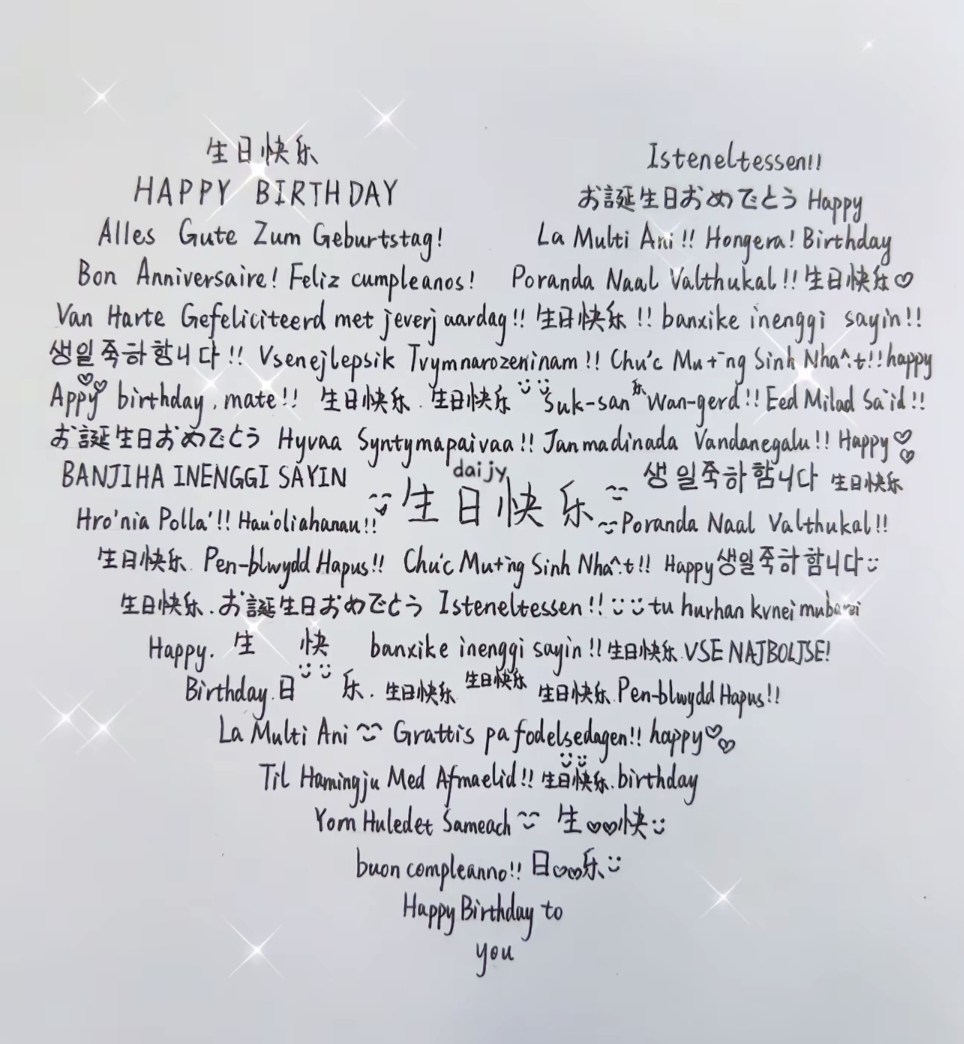 生日快乐
HAPPY BIRTHDAY
Isteneltessen!!
お誕生日おめでとう Happy
Alles Gute Zum Geburtstag!
La Multi Ani !! Hongera! Birthday
Bon Anniversaire! Feliz cumpleanos!
Poranda Naal Valthukal!! 生日快乐♡
Van Harte Gefeliciteerd met jeverj aardag!! 生日快乐 !! banxike inenggi sayin!!
생일죽하합니다!! Vsenejlepsik Tvymnarozeninam!! Chu'c Mu+ng Sinh Nha^.t!! happy
Appy birthday, mate!! 生日快乐. 生日快乐 Suk-san 乐 Wan-gerd!! Eed Milad Sa'id!!
お誕生日おめでとう Hyvaa Syntymapaivaa!! Janmadinada Vandanegalu!! Happy♡
BANJIHA INENGGI SAYIN daijy 생일죽하함니다 生日快乐
生日快乐
Hro'nia Polla'!! Hau'oliahanau!! Poranda Naal Valthukal!!
生日快乐. Pen-blwydd Hapus!! Chu'c Mu+ng Sinh Nha^.t!! Happy 생일죽하함니다
生日快乐.お誕生日おめでとう Isteneltessen!! tu hurhan kvnei mubarei
Happy. 生 快 banxike inenggi sayin!! 生日快乐. VSE NAJBOLJSE!
Birthday. 日 乐. 生日快乐 生日快乐 生日快乐. Pen-blwydd Hapus!!
La Multi Ani Grattis pa fodelsedagen!! happy♡♡
Til Hamingju Med Afmaelid!! 生日快乐. birthday
Yom Huledet Sameach 生♡♡快
buon compleanno!! 日♡♡乐
Happy Birthday to
you